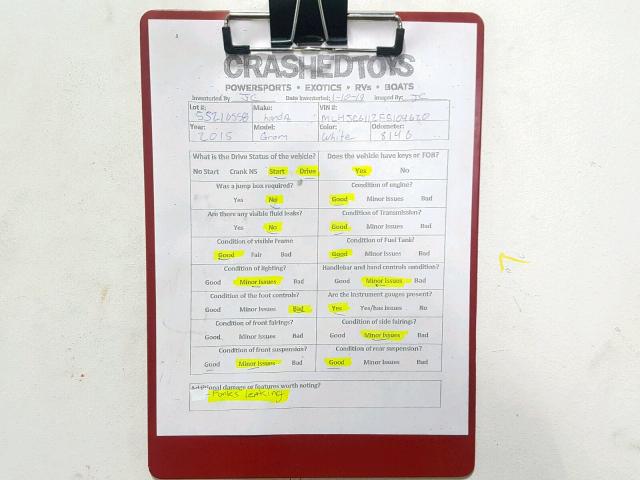 CRASHEDTOYS
POWERSPORTS • EXOTICS • RVs • BOATS
Inventoried By JC Date Inventoried: 1-10-19 Imaged By: JC
Lot #: Make: VIN #:
55210558 honda MLHJC6112F5104620
Year: Model: Color: Odometer:
2015 Grom White 8146
What is the Drive Status of the vehicle? Does the vehicle have keys or FOB?
No Start Crank NS Start Drive Yes No
Was a jump box required? Condition of engine?
Yes No Good Minor Issues Bad
Are there any visible fluid leaks? Condition of Transmission?
Yes No Good Minor Issues Bad
Condition of visible Frame Condition of Fuel Tank?
Good Fair Bad Good Minor Issues Bad
Condition of lighting? Handlebar and hand controls condition?
Good Minor Issues Bad Good Minor Issues Bad
Condition of the foot controls? Are the instrument gauges present?
Good Minor Issues Bad Yes Yes/has issues No
Condition of front fairings? Condition of side fairings?
Good Minor Issues Bad Good Minor Issues Bad
Condition of front suspension? Condition of rear suspension?
Good Minor Issues Bad Good Minor Issues Bad
Additional damage or features worth noting?
- Forks leaking